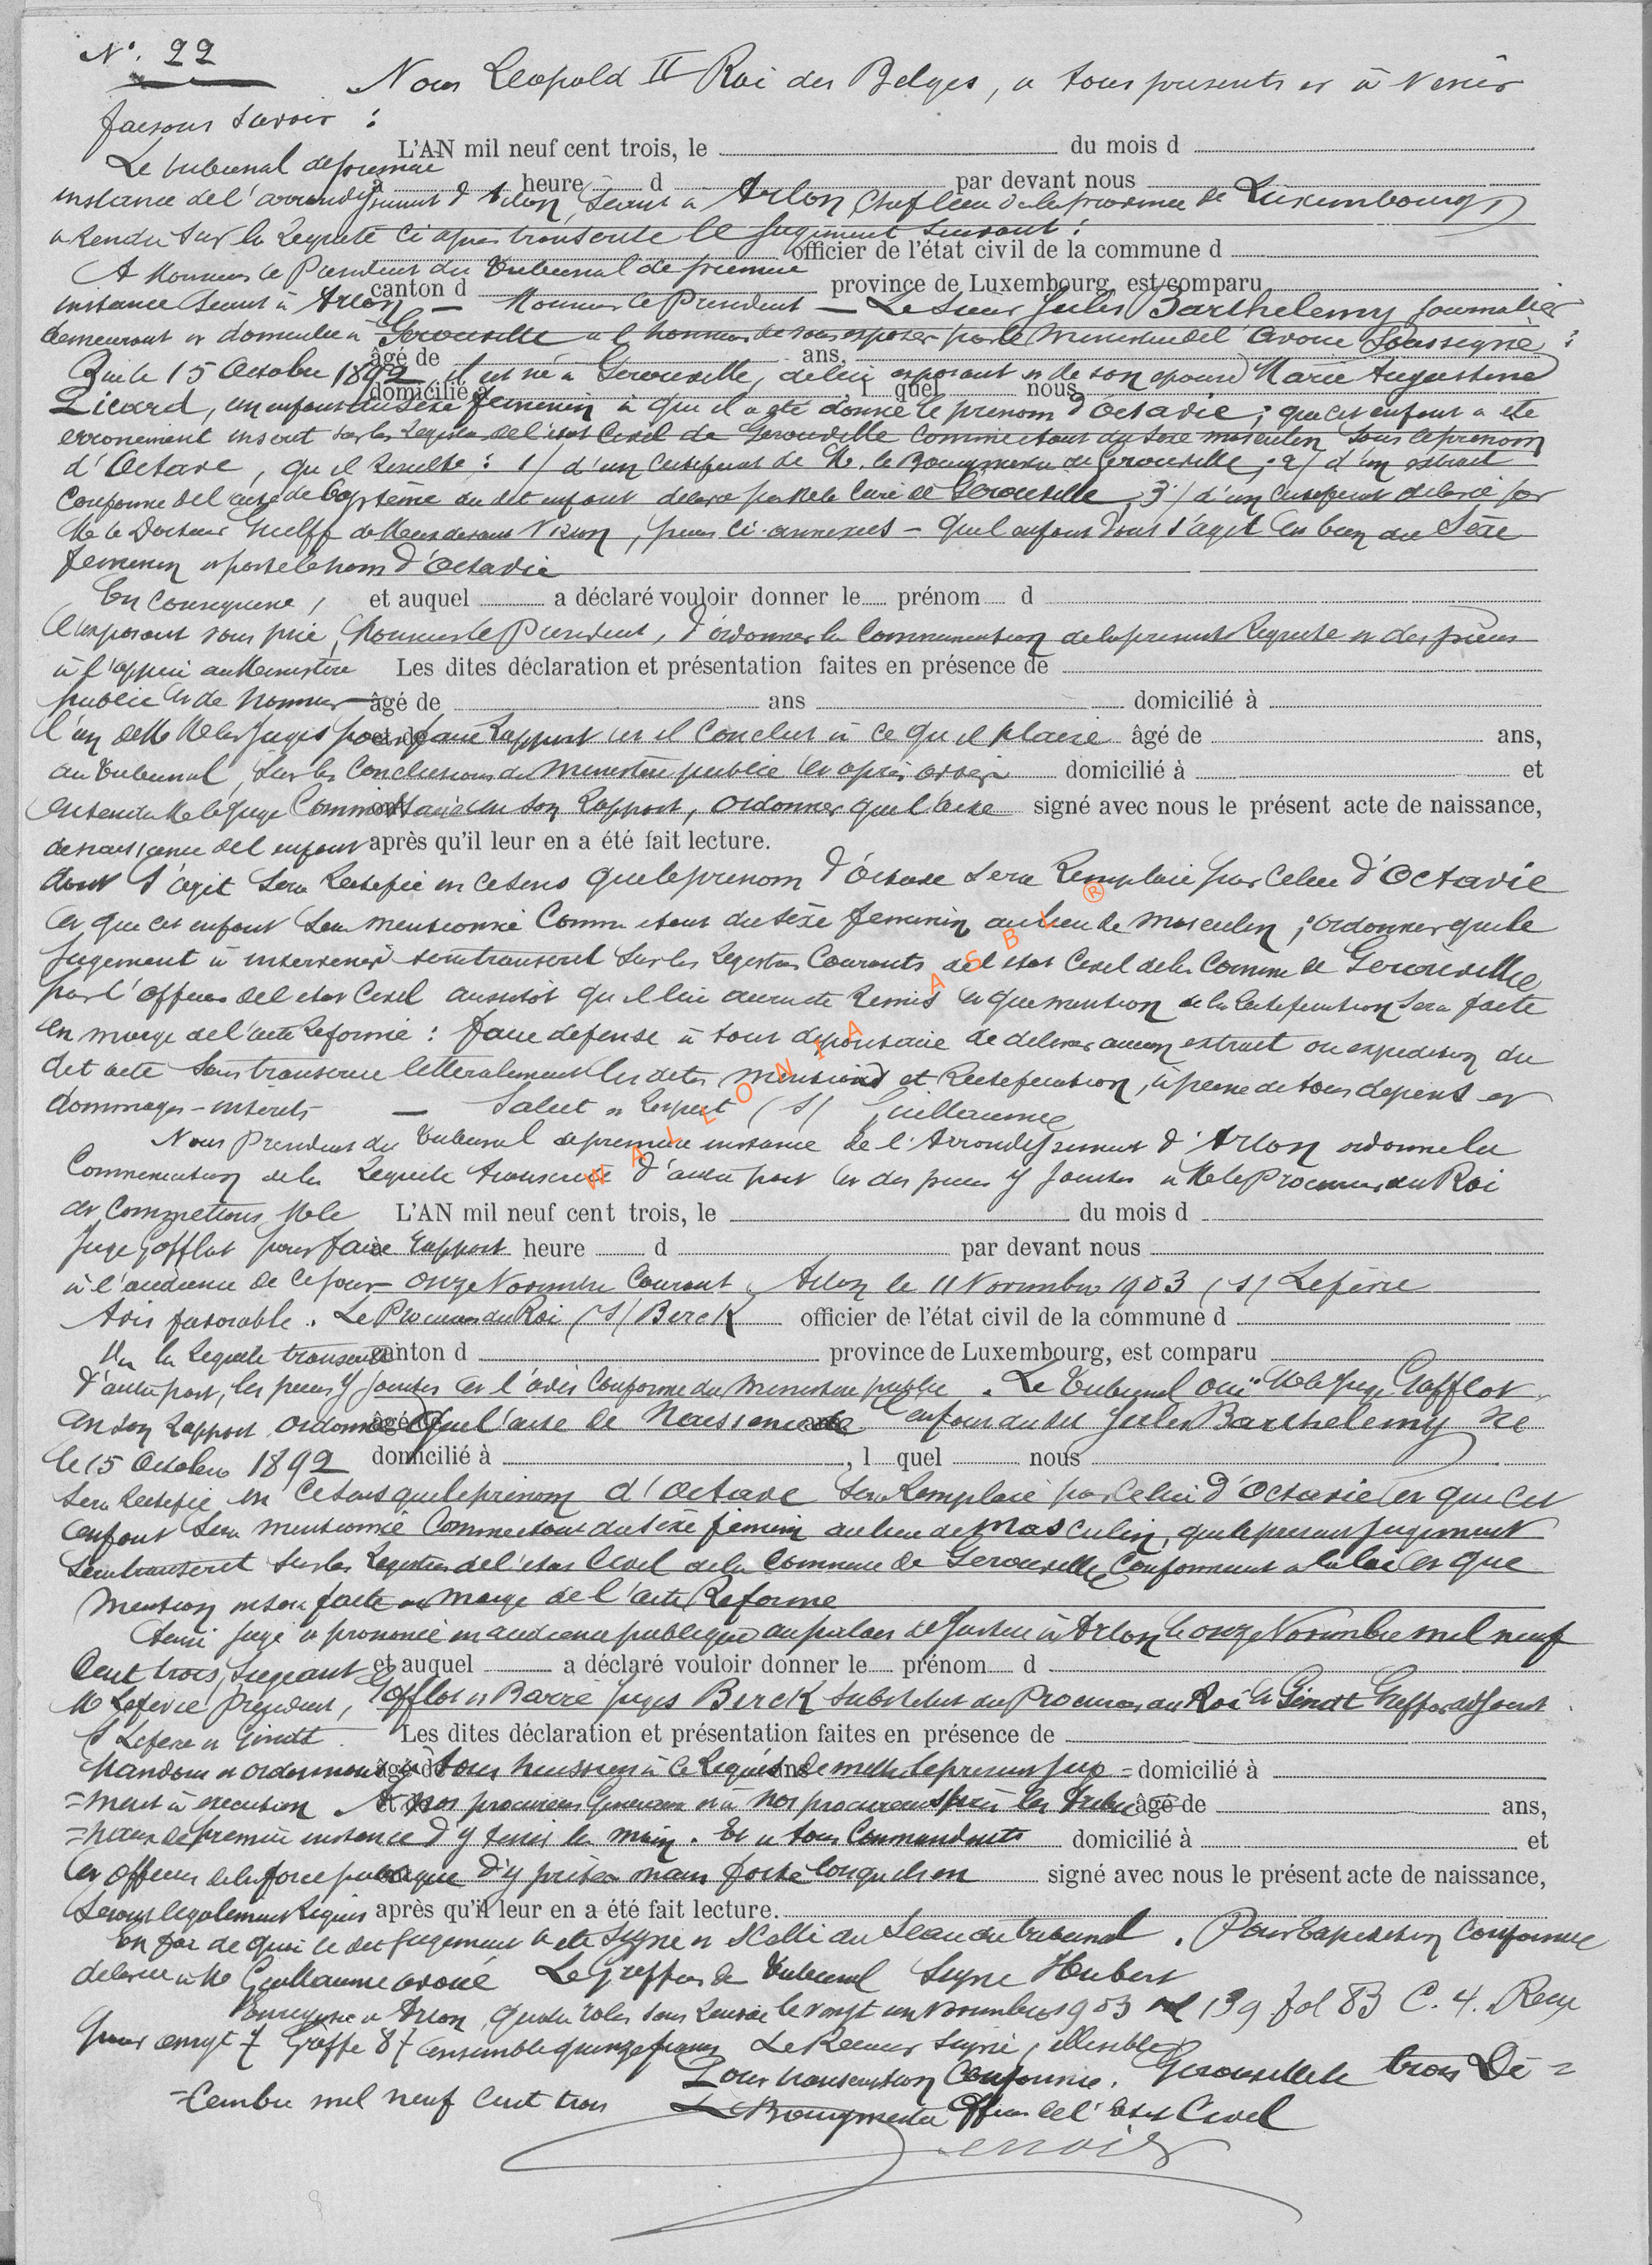 N°. 22
Nous Leopold II Roi des Belges, a tous presents et à venir
faisons savoir :
L'AN mil neuf cent trois, le du mois d
Le tribunal de premiere
à heure d par devant nous
instance de l'arrondissement d'Arlon, Séant a Arlon, Chef lieu de la province de Luxembourg
a rendu sur la Requete ci apres transcrite le jugement suivant :
officier de l'état civil de la commune d
A Monsieur le President du Tribunal de premiere
canton d province de Luxembourg, est comparu
instance Seant à Arlon — Monsieur le President — Le sieur Jules Barthelemy journalier
demeurant et domicilié a Gerouville a l'honneur de vous exposer par le Ministere de l'avoué Soussigné :
âgé de ans,
Que le 15 Octobre 1892 il est né a Gerouville, de lui exposant et de son epouse Marie Augustine
domicilié à l quel nous
Licard, un enfant du Sexe feminin à qui il a eté donné le prenom d'Octavie ; que cet enfant a ete
erronement inscrit sur les Registres de l'etat Civil de Gerouville comme etant du sexe masculin sous le prenom
d'Octave, qu'il resulte : 1/ d'un certificat de M. le Bourgmestre de Gerouville ; 2/ d'un extrait
conforme de l'acte de Baptême du dit enfant delivré par M le Curé de Gerouville ; 3/ d'un certificat delivré par
M le Docteur Guelff de Meix devant Virton, pieces ci-annexées - que l'enfant dont s'agit est bien du Sexe
feminin et porte le nom d'Octavie
En consequence, et auquel a déclaré vouloir donner le prénom d
l'exposant vous prie, Monsieur le President, d'ordonner la communication de la presente Requete et des pieces
à l'appui au Ministère Les dites déclaration et présentation faites en présence de
public et de nommer âgé de ans domicilié à
l'un de MM les Juges pour faire rapport et il conclut à ce qu'il plaise âgé de ans,
au tribunal, sur les conclusions du Ministere public et après avoir domicilié à et
entendu M le Juge Commissaire en son rapport, ordonner que l'acte signé avec nous le présent acte de naissance,
de naissance de l'enfant après qu'il leur en a été fait lecture.
dont s'agit sera Rectifié en ce sens que le prenom d'Octave sera Remplacé par celui d'Octavie
et que cet enfant sera mentionné Comme etant du sexe feminin au lieu de masculin ; ordonner que le
jugement à intervenir sera transcrit sur les Registres Courants de l'etat Civil de la Commune de Gerouville
par l'officier de l'etat Civil aussitôt qu'il lui aura ete remis et que mention de la rectification sera faite
en marge de l'acte reformé : faire defense à tout depositaire de delivrer aucun extrait ou expedition du
dit acte sans transcrire litteralement les dites mentions et Rectification, à peine de tous depens et
dommages-interets — Salut et respect (S) Guillaume
Nous President du Tribunal de premiere instance de l'Arrondissement d'Arlon ordonne la
Communication de la Requete transcrite d'autre part et des pieces y jointes a M le Procureur du Roi
et Commettons M le L'AN mil neuf cent trois, le du mois d
Juge Gofflot pour faire rapport heure d par devant nous
à l'audience de ce jour - onze Novembre Courant. Arlon le 11 Novembre 1903 (S) Lefevre
Avis favorable. Le Procureur du Roi (S) Berck officier de l'état civil de la commune d
Vu la Requete transcrite canton d province de Luxembourg, est comparu
d'autre part, les pieces y jointes et l'avis conforme du Ministere public. Le Tribunal ouï M le Juge Gofflot
en son rapport ordonne que l'acte de Naissance de l'enfant du dit Jules Barthelemy né
le 15 Octobre 1892 domicilié à , l quel nous
sera rectifié en ce sens que le prénom d'Octave sera Remplacé par celui d'Octavie et que cet
enfant sera mentionné Comme etant du sexe feminin au lieu de Masculin, que le present jugement
sera transcrit sur les Registres de l'etat Civil de la Commune de Gerouville Conformement a la loi et que
mention en sera faite en marge de l'acte Reformé
Ainsi jugé et prononcé en audience publique au palais de Justice à Arlon le onze Novembre mil neuf
Cent trois, Siegeant et auquel a déclaré vouloir donner le prénom d
M Lefevre President, Gofflot et Barré Juges Berck Substitut du Procureur du Roi et Gindt Greffier adjoint.
S Lefevre et Gindt. Les dites déclaration et présentation faites en présence de
Mandons et ordonnons à tous huissiers à ce requis de mettre le present juge= domicilié à
=ment à execution. A nos procureurs Generaux et à nos procureurs près les Tribu âgé de ans,
=naux de premiere instance d'y tenir la main. Et a tous Commandants domicilié à et
et officiers de la force publique d'y prêter main forte lorsqu'ils en signé avec nous le présent acte de naissance,
seront legalement requis après qu'il leur en a été fait lecture.
En foi de quoi le dit jugement a ete signé et scellé du Sceau du tribunal. Pour Expedition conforme
delivrée à M Guillaume avoué Le Greffier du Tribunal Signé Hubert
Enregistré a Arlon, quatre roles sans renvoi le vingt un novembre 1903 vol 139 fol 83 C. 4. Reçu
pour enregt 7 Greffe 8 f ensemble quinze francs Le Receveur signé, illisible
Pour transcription Conforme. Gerouville le trois Dé=
=cembre mil neuf Cent trois Le Bourgmestre Officier de l'Etat Civil
WALLONIA ASBL ®